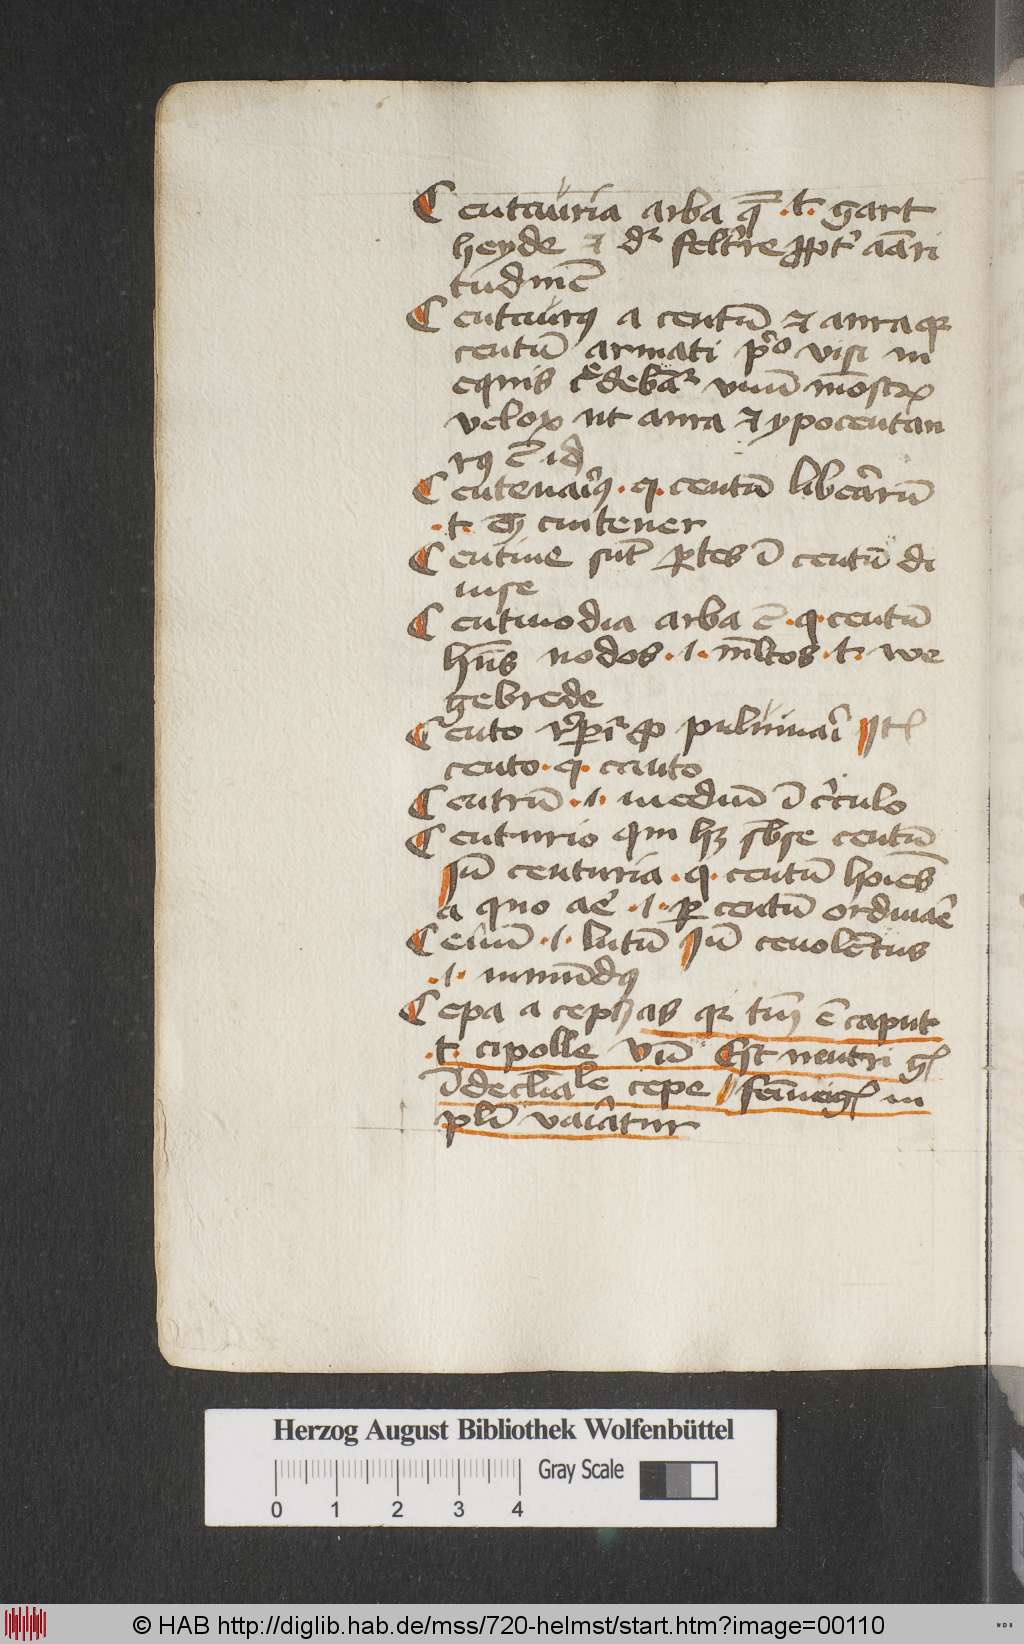 Centauria arba q̄ .t. gart
heyde ⁊ dr̄ felt're ꝓpt' aāri
tudinē
Centaurꝰ a centū ⁊ aura qꝛ
centū armati pº visi in
equis c̄debāᷣ vnū mōstrꝫ
velox ut aura ⁊ ypocentau
rꝰ ē id
Centenaꝰ .q. centū librarū
.t. eyn cintener
Centine sūt ꝑtes ī centū di
uise
Centinodia arba ē .q. centū
hn̄s nodos .i. ml̄tos .t. we
gebrede
Cento ꝓ puluinari Itē
cento .q. canto
Centrū .i. mediū ī circulo
Centurio qui hꝫ sb̄ se centū
Jn̄ centuria .q. centū hoīes
a quo .i. ꝑ centū ordinare
Cenū .i. lutū Jn̄ cenolētus
.i. inmūdꝰ
Cepa a cephas qꝛ tm̄ ē caput
.t. cipolle Vn̄ Est neutri gꝭ
īdeclīale cepe feīnei gꝭ in
plī vaiātur
Herzog August Bibliothek Wolfenbüttel
Gray Scale
0 1 2 3 4
© HAB http://diglib.hab.de/mss/720-helmst/start.htm?image=00110